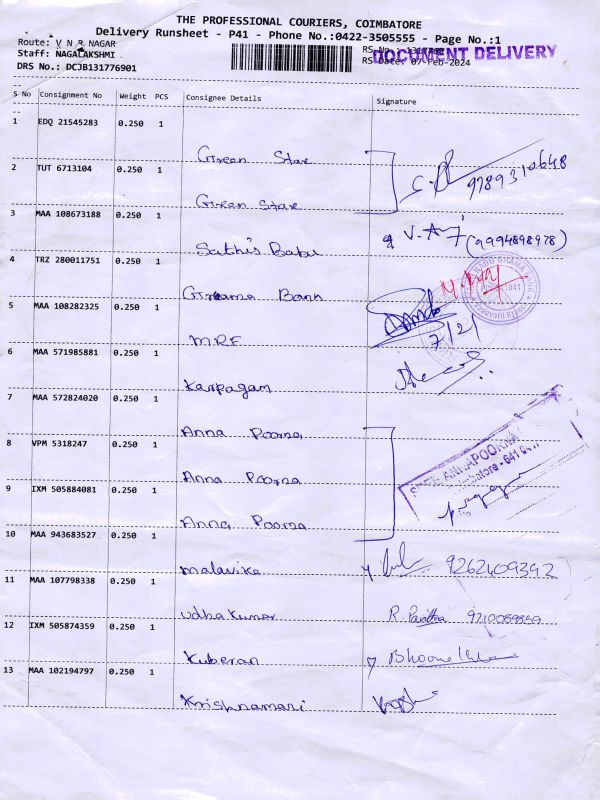 THE PROFESSIONAL COURIERS, COIMBATORE
Delivery Runsheet - P41 - Phone No.:0422-3505555 - Page No.:1
Route: V N R NAGAR
Staff: NAGALAKSHMI
DRS No.: DCJB131776901
RS No.
DOCUMENT DELIVERY
RS Date: 07-Feb-2024
S No Consignment No Weight PCS Consignee Details Signature
1 EDQ 21545283 0.250 1
Green Star
9789310648
2 TUT 6713104 0.250 1
Green Star
3 MAA 108673188 0.250 1
Sathis Babu
(9994898978)
4 TRZ 280011751 0.250 1
Grama Bank
5 MAA 108282325 0.250 1
MRF
7/2/
6 MAA 571985881 0.250 1
Karpagam
7 MAA 572824020 0.250 1
Anna Poorna
8 VPM 5318247 0.250 1
Anna Poorna
9 IXM 505884081 0.250 1
Anna Poorna
10 MAA 943683527 0.250 1
malavika
9262409392
11 MAA 107798338 0.250 1
udhakumar
R. Pavithra
12 IXM 505874359 0.250 1
Kuberan
13 MAA 102194797 0.250 1
Krishnamari